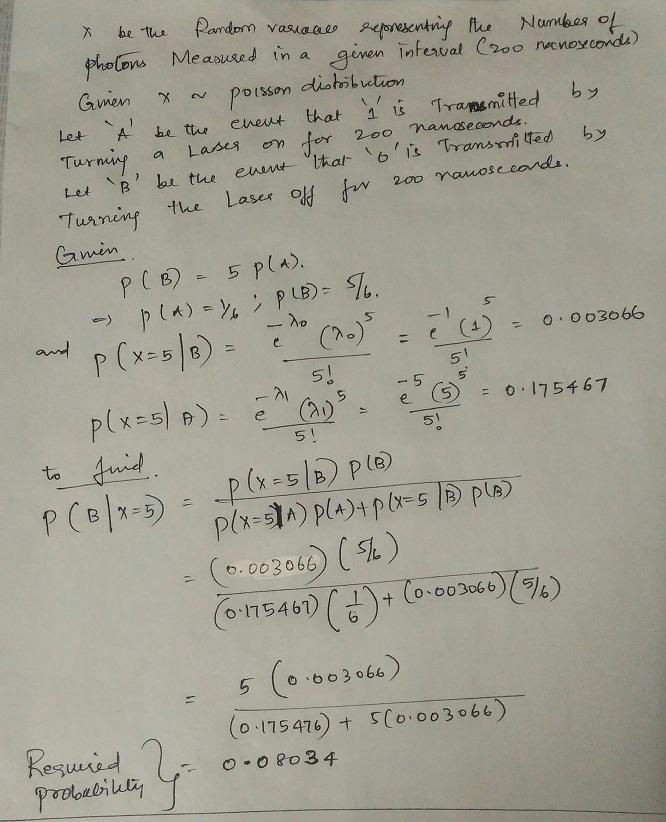 X be the Random variable representing the Number of
photons Measured in a given interval (200 nanoseconds)
Given X ~ poisson distribution
Let 'A' be the event that '1' is Transmitted by
Turning a Laser on for 200 nanoseconds.
Let 'B' be the event that '0' is Transmitted by
Turning the Laser off for 200 nanoseconds.
Given
P(B) = 5 P(A).
=> P(A) = 1/6 ; P(B) = 5/6.
and P(X=5|B) = e^{-λ0} (λ0)^5 / 5! = e^{-1} (1)^5 / 5! = 0.003066
P(X=5|A) = e^{-λ1} (λ1)^5 / 5! = e^{-5} (5)^5 / 5! = 0.175467
to find.
P(B|X=5) = P(X=5|B) P(B) / P(X=5|A) P(A) + P(X=5|B) P(B)
= (0.003066) (5/6) / (0.175467) (1/6) + (0.003066) (5/6)
= 5 (0.003066) / (0.175476) + 5(0.003066)
Required probability } = 0.08034